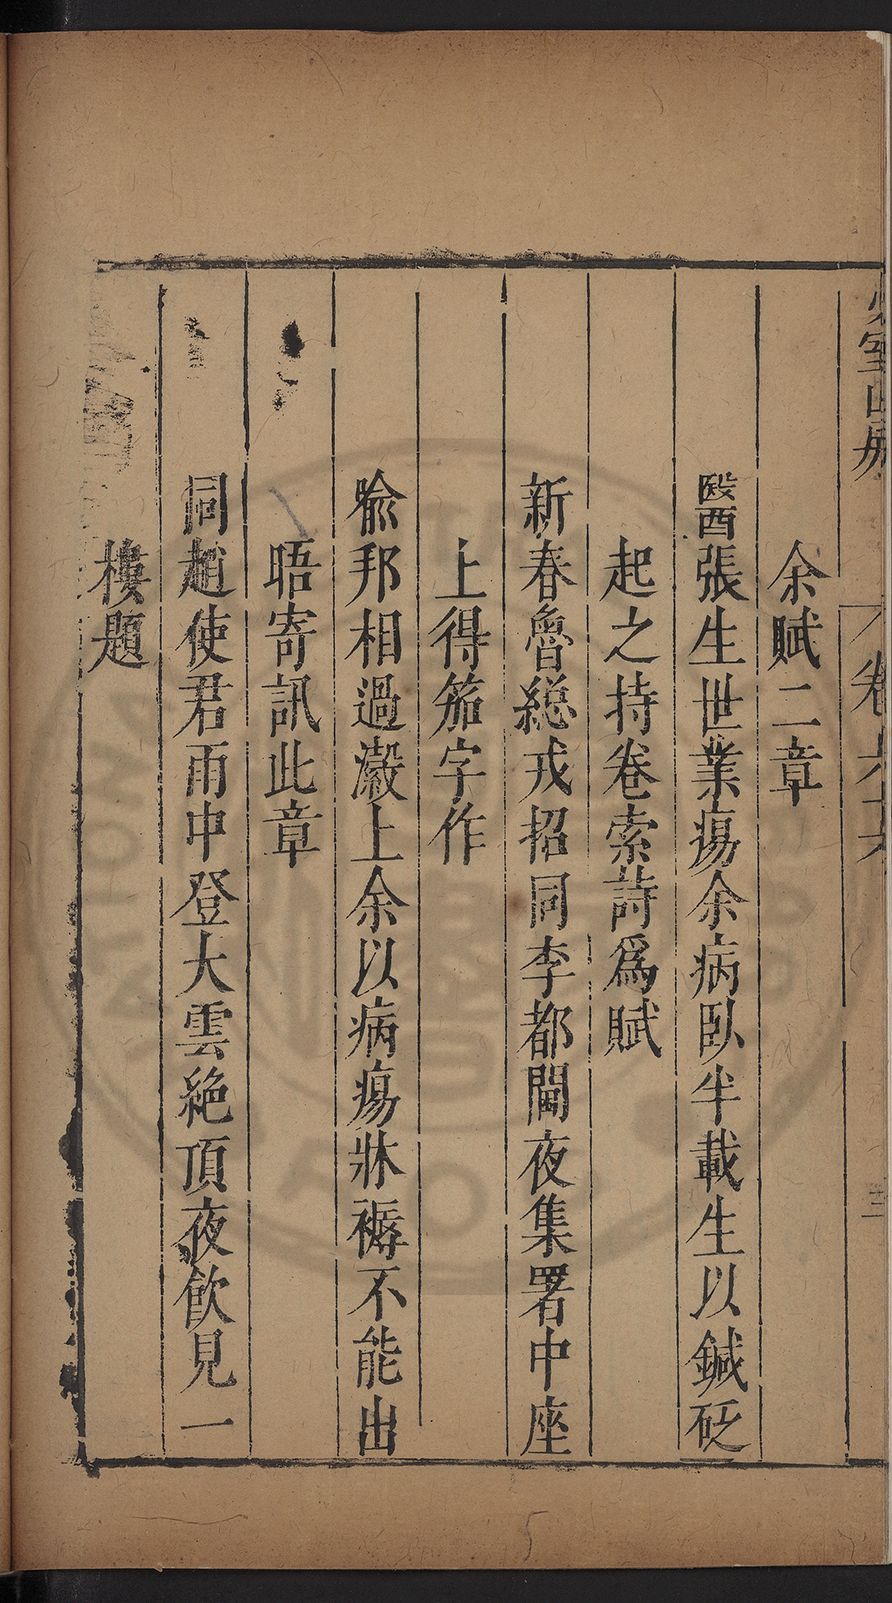 少室山房 卷六六
余賦二章
醫張生世業瘍余病臥半載生以鍼砭
起之持卷索詩爲賦
新春魯緫戎招同李都閫夜集署中座
上得笳字作
喩邦相過瀫上余以病瘍牀褥不能出
晤寄訊此章
同趙使君雨中登大雲絶頂夜飮見一
樓題